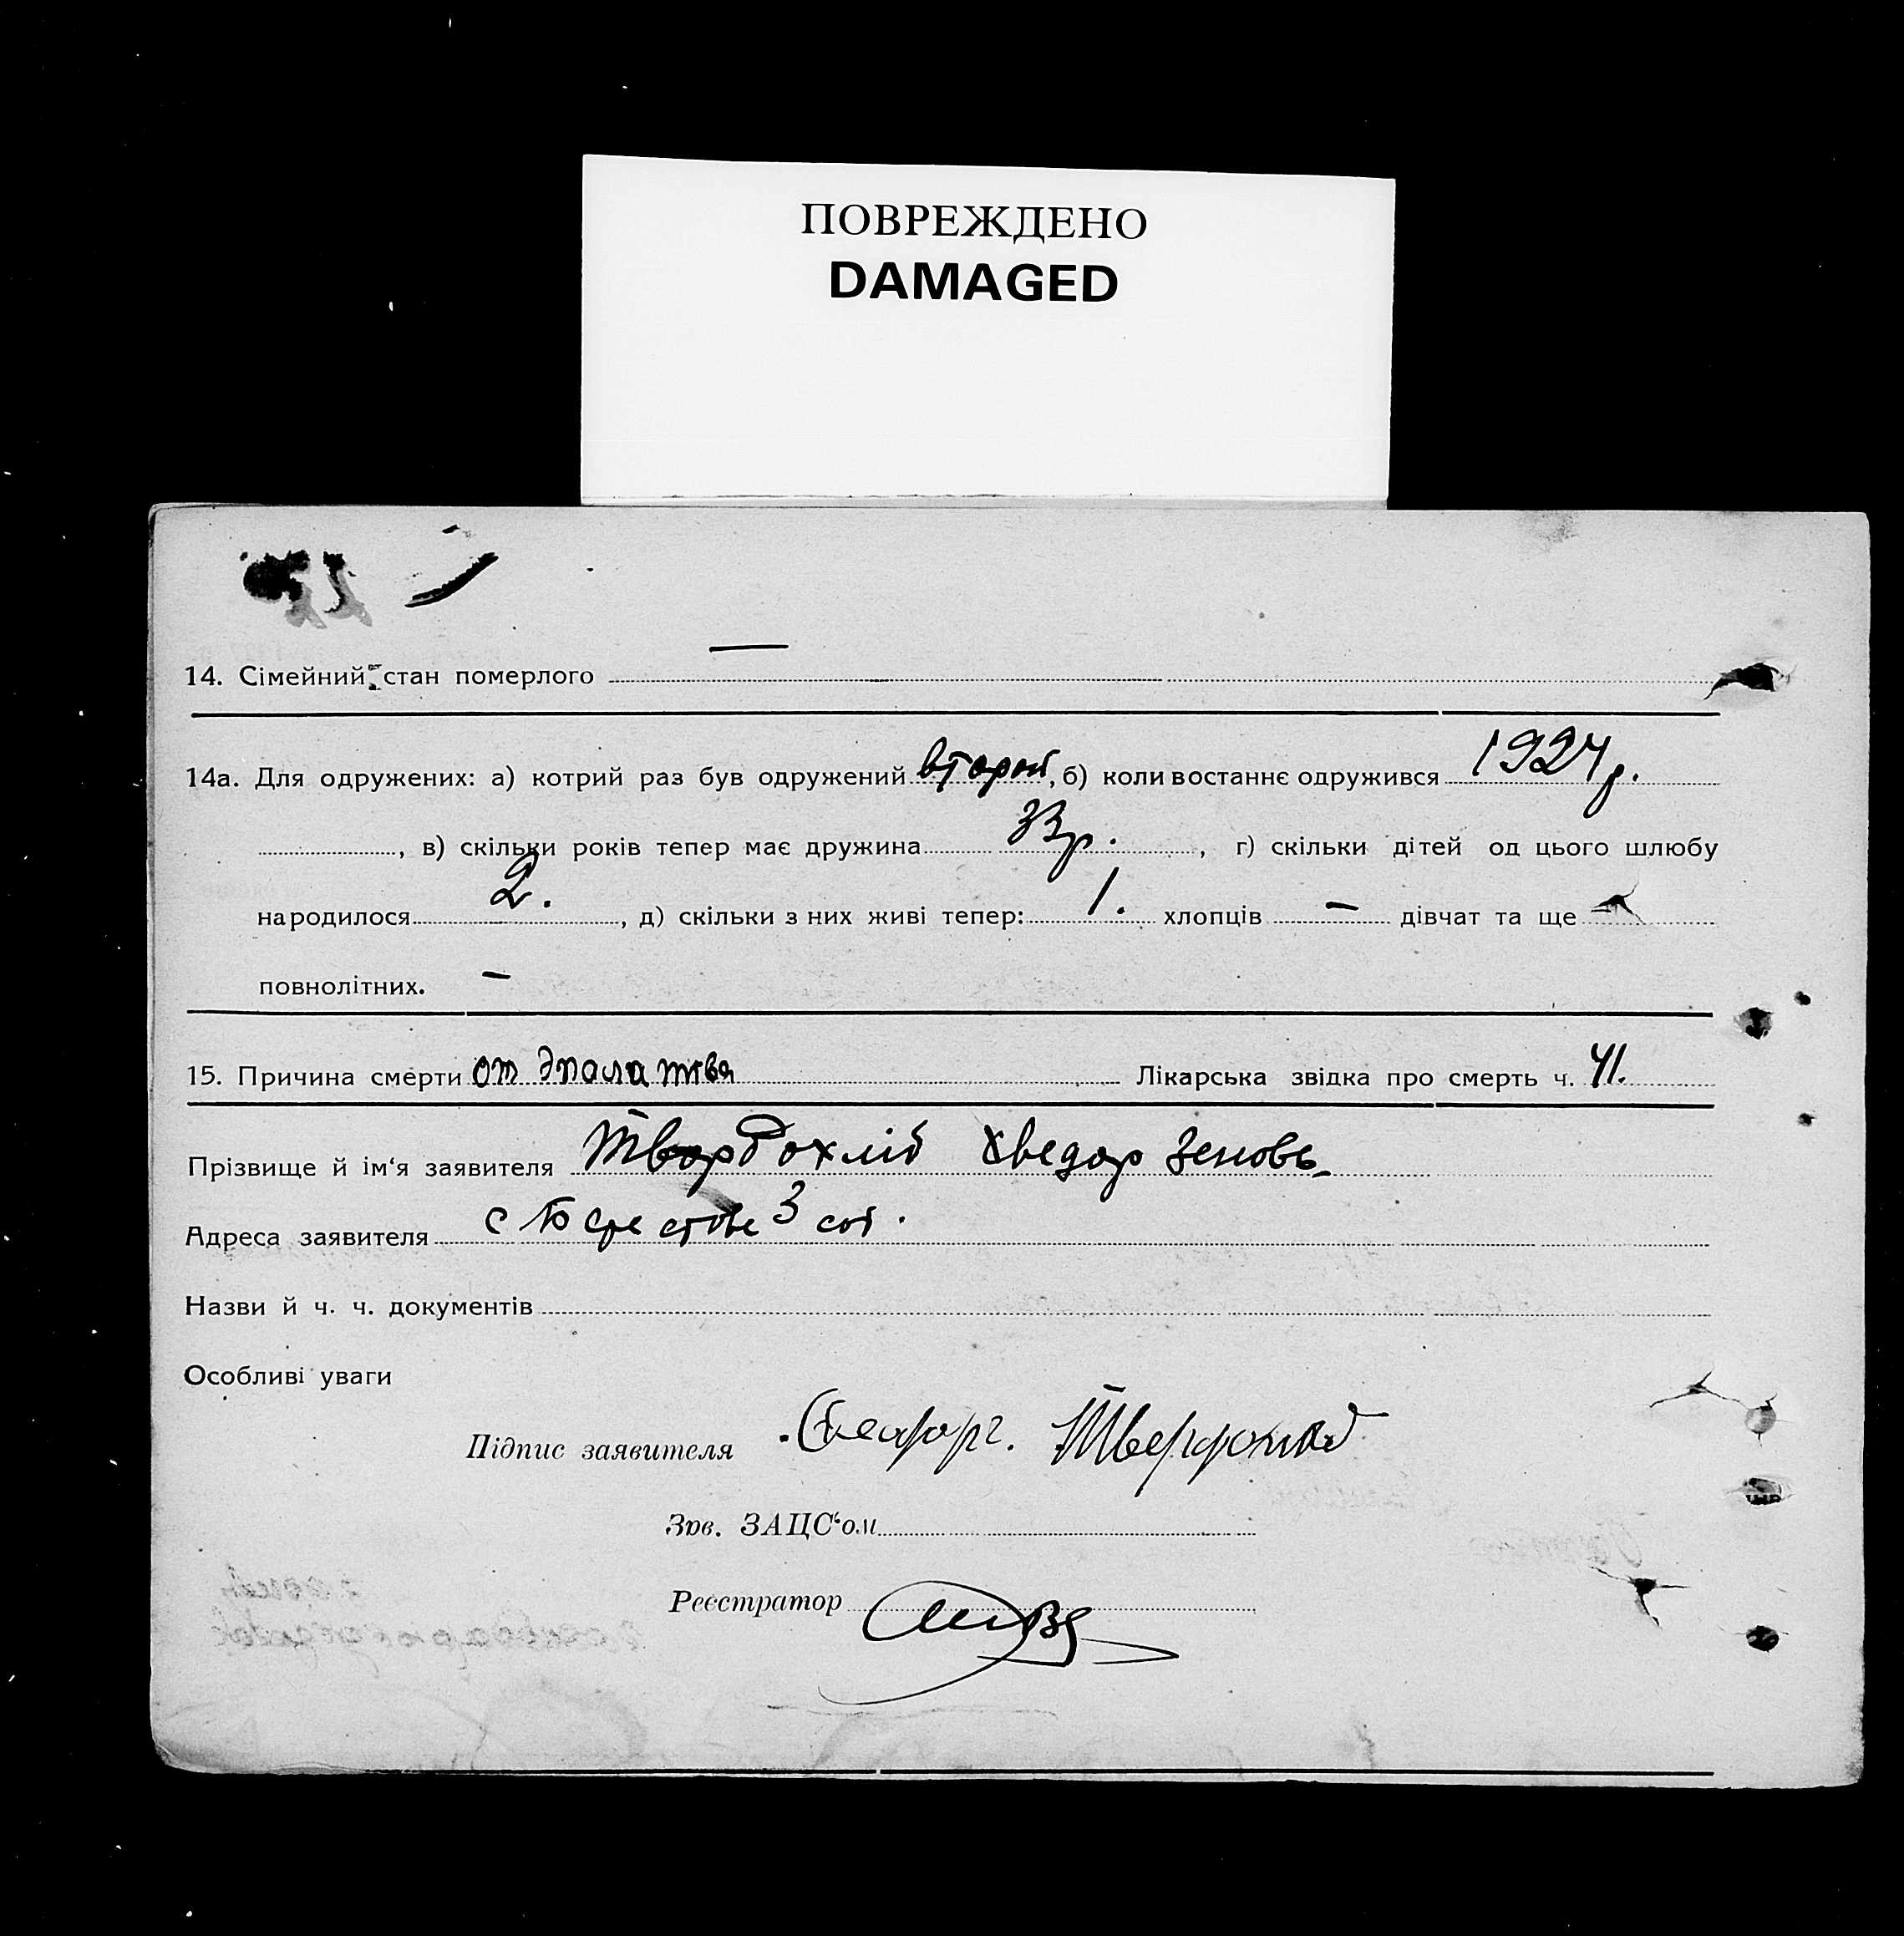 ПОВРЕЖДЕНО
DAMAGED
14. Сімейний стан померлого —
14а. Для одружених: а) котрий раз був одружений второй, б) коли востаннє одружився 1924 р.
, в) скільки років тепер має дружина 33 р. , г) скільки дітей од цього шлюбу
народилося 2. , д) скільки з них живі тепер: 1. хлопців – дівчат та ще –
повнолітних. –
15. Причина смерти от Лікарська звідка про смерть ч. 41.
Прізвище й ім‘я заявителя Твордохліб Хведор Зеновь
Адреса заявителя с 3 сот.
Назви й ч. ч. документів
Особливі уваги
Підпис заявителя
Зав. ЗАЦС‘ом
Реєстратор